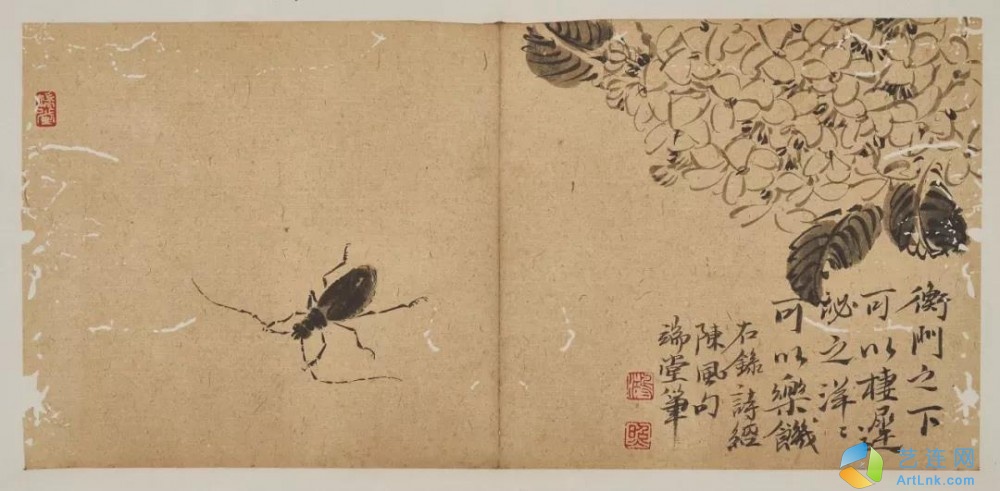 衡門之下
可以棲遲
泌之洋〻
可以樂饑
右錄詩經
陳風句
端堂筆
艺连网
ArtLnk.com